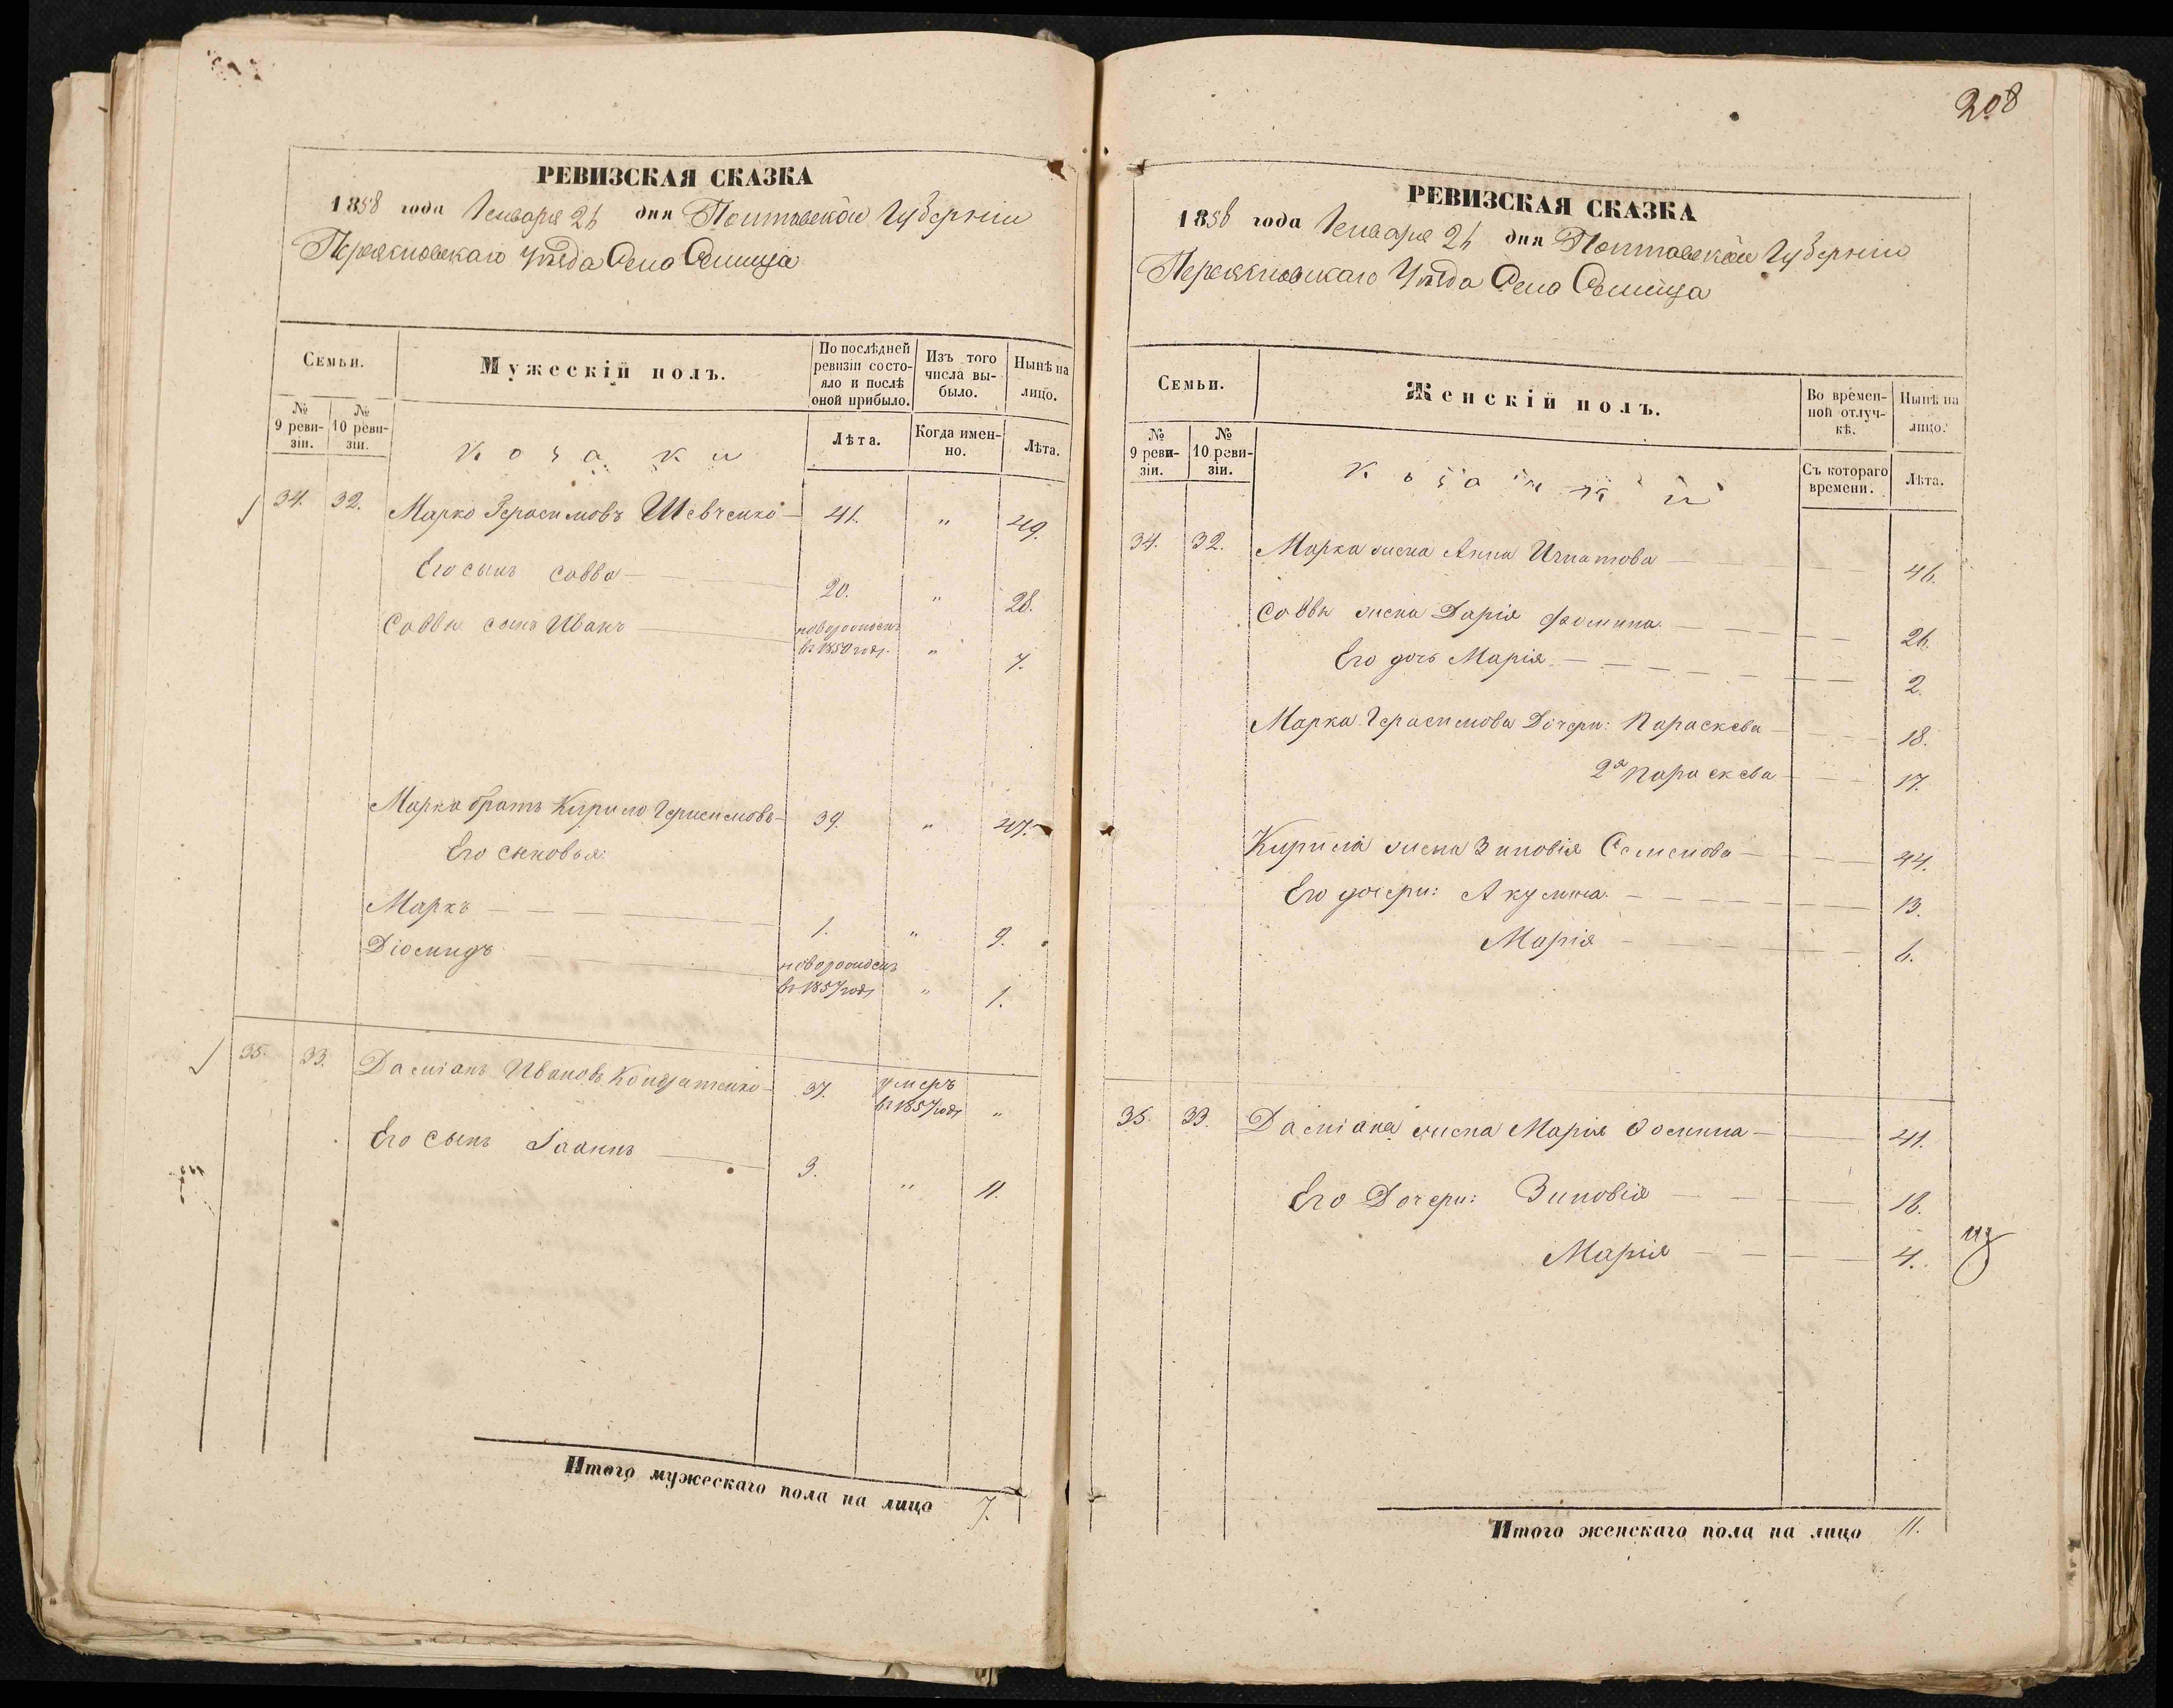 РЕВИЗСКАЯ СКАЗКА
1858 года Генваря 26 дня Полтавской Губерніи
Переяславскаго Уѣзда Село Сѣмища
Семьи.
Мужескій полъ.
По послѣдней ревизіи состояло и послѣ оной прибыло.
Изъ того числа выбыло.
Нынѣ на лицо.
№ 9 ревизіи.
№ 10 ревизіи.
Козаки
Лѣта.
Когда именно.
Лѣта.
34. 32. Марко Герасимовъ Шевченко 41. " 49.
Его сынъ Савва 20. " 28.
Саввы сынъ Иванъ новорожденъ
въ 1850 году. " 7.
Марка братъ Кирило Герасимовъ 39. " 47.
Его сыновья:
Маркъ 1. " 9.
Діомидъ новорожденъ
въ 1857 году " 1.
35. 33. Даміанъ Ивановъ Кондратенко 37. умеръ
въ 1857 году "
Его сынъ Іоаннъ 3. " 11.
Итого мужескаго пола на лицо 7.
208
РЕВИЗСКАЯ СКАЗКА
1858 года Генваря 26 дня Полтавской Губерніи
Переяславскаго Уѣзда Село Сѣмища
Семьи.
Женскій полъ.
Во временной отлучкѣ.
Нынѣ на лицо.
№ 9 ревизіи.
№ 10 ревизіи.
Съ котораго времени.
Лѣта.
34. 32. Марка жена Анна Игнатова 46.
Саввы жена Дарія Фомина 26.
Его дочь Марія 2.
Марка Герасимова Дочери: Параскева 18.
2я Параскева 17.
Кирила жена Зиновія Семенова 44.
Его дочери: Акулина 13.
Марія 6.
35. 33. Даміана жена Марія Ѳомина 41.
Его Дочери: Зиновія 18.
Марія 4.
Итого женскаго пола на лицо 11.